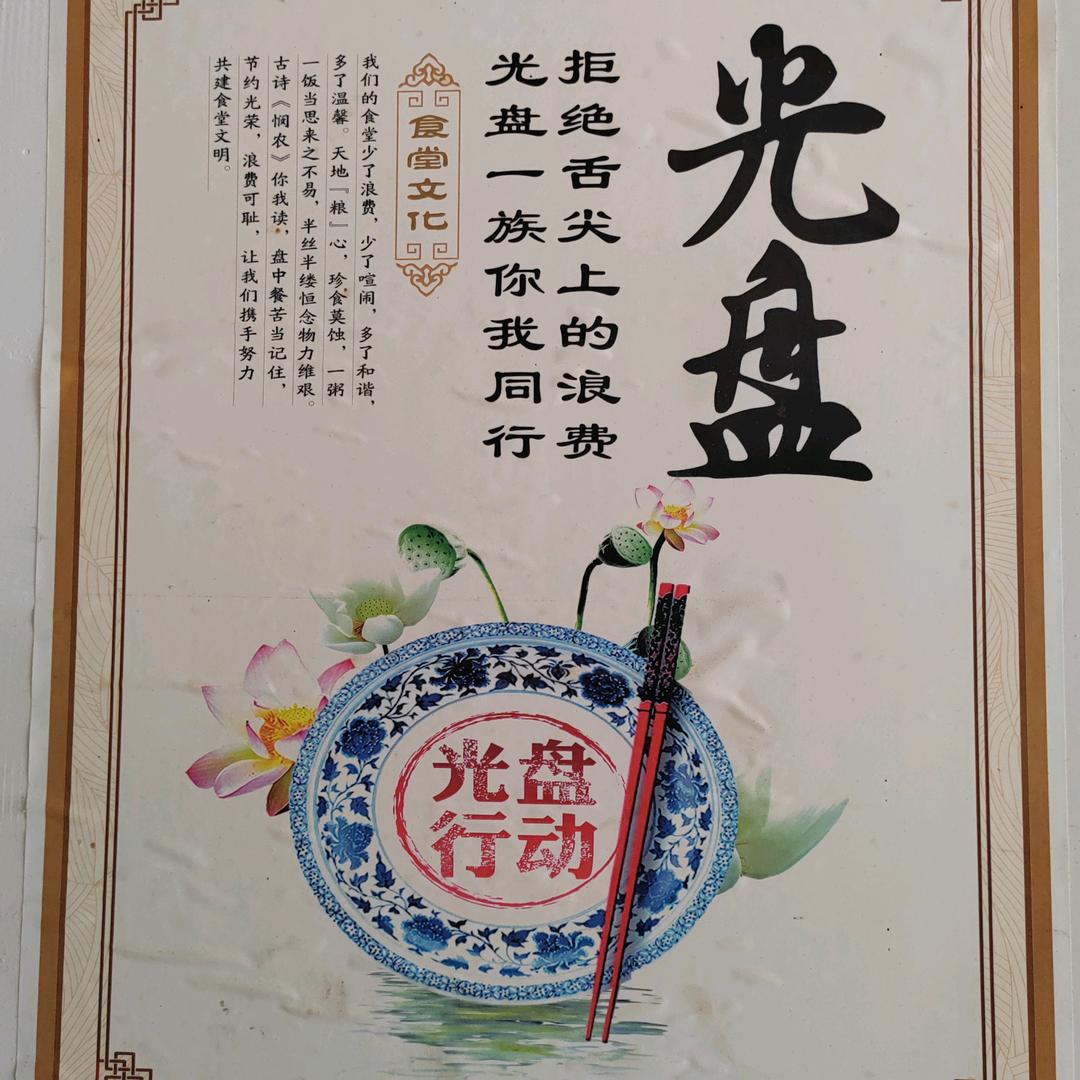 光盘
拒绝舌尖上的浪费
光盘一族你我同行
食堂文化
我们的食堂少了浪费，少了喧闹，多了和谐，
多了温馨。天地『粮』心，珍食莫蚀，一粥
一饭当思来之不易，半丝半缕恒念物力维艰。
古诗《悯农》你我读，盘中餐苦当记住，
节约光荣，浪费可耻，让我们携手努力
共建食堂文明。
光盘
行动